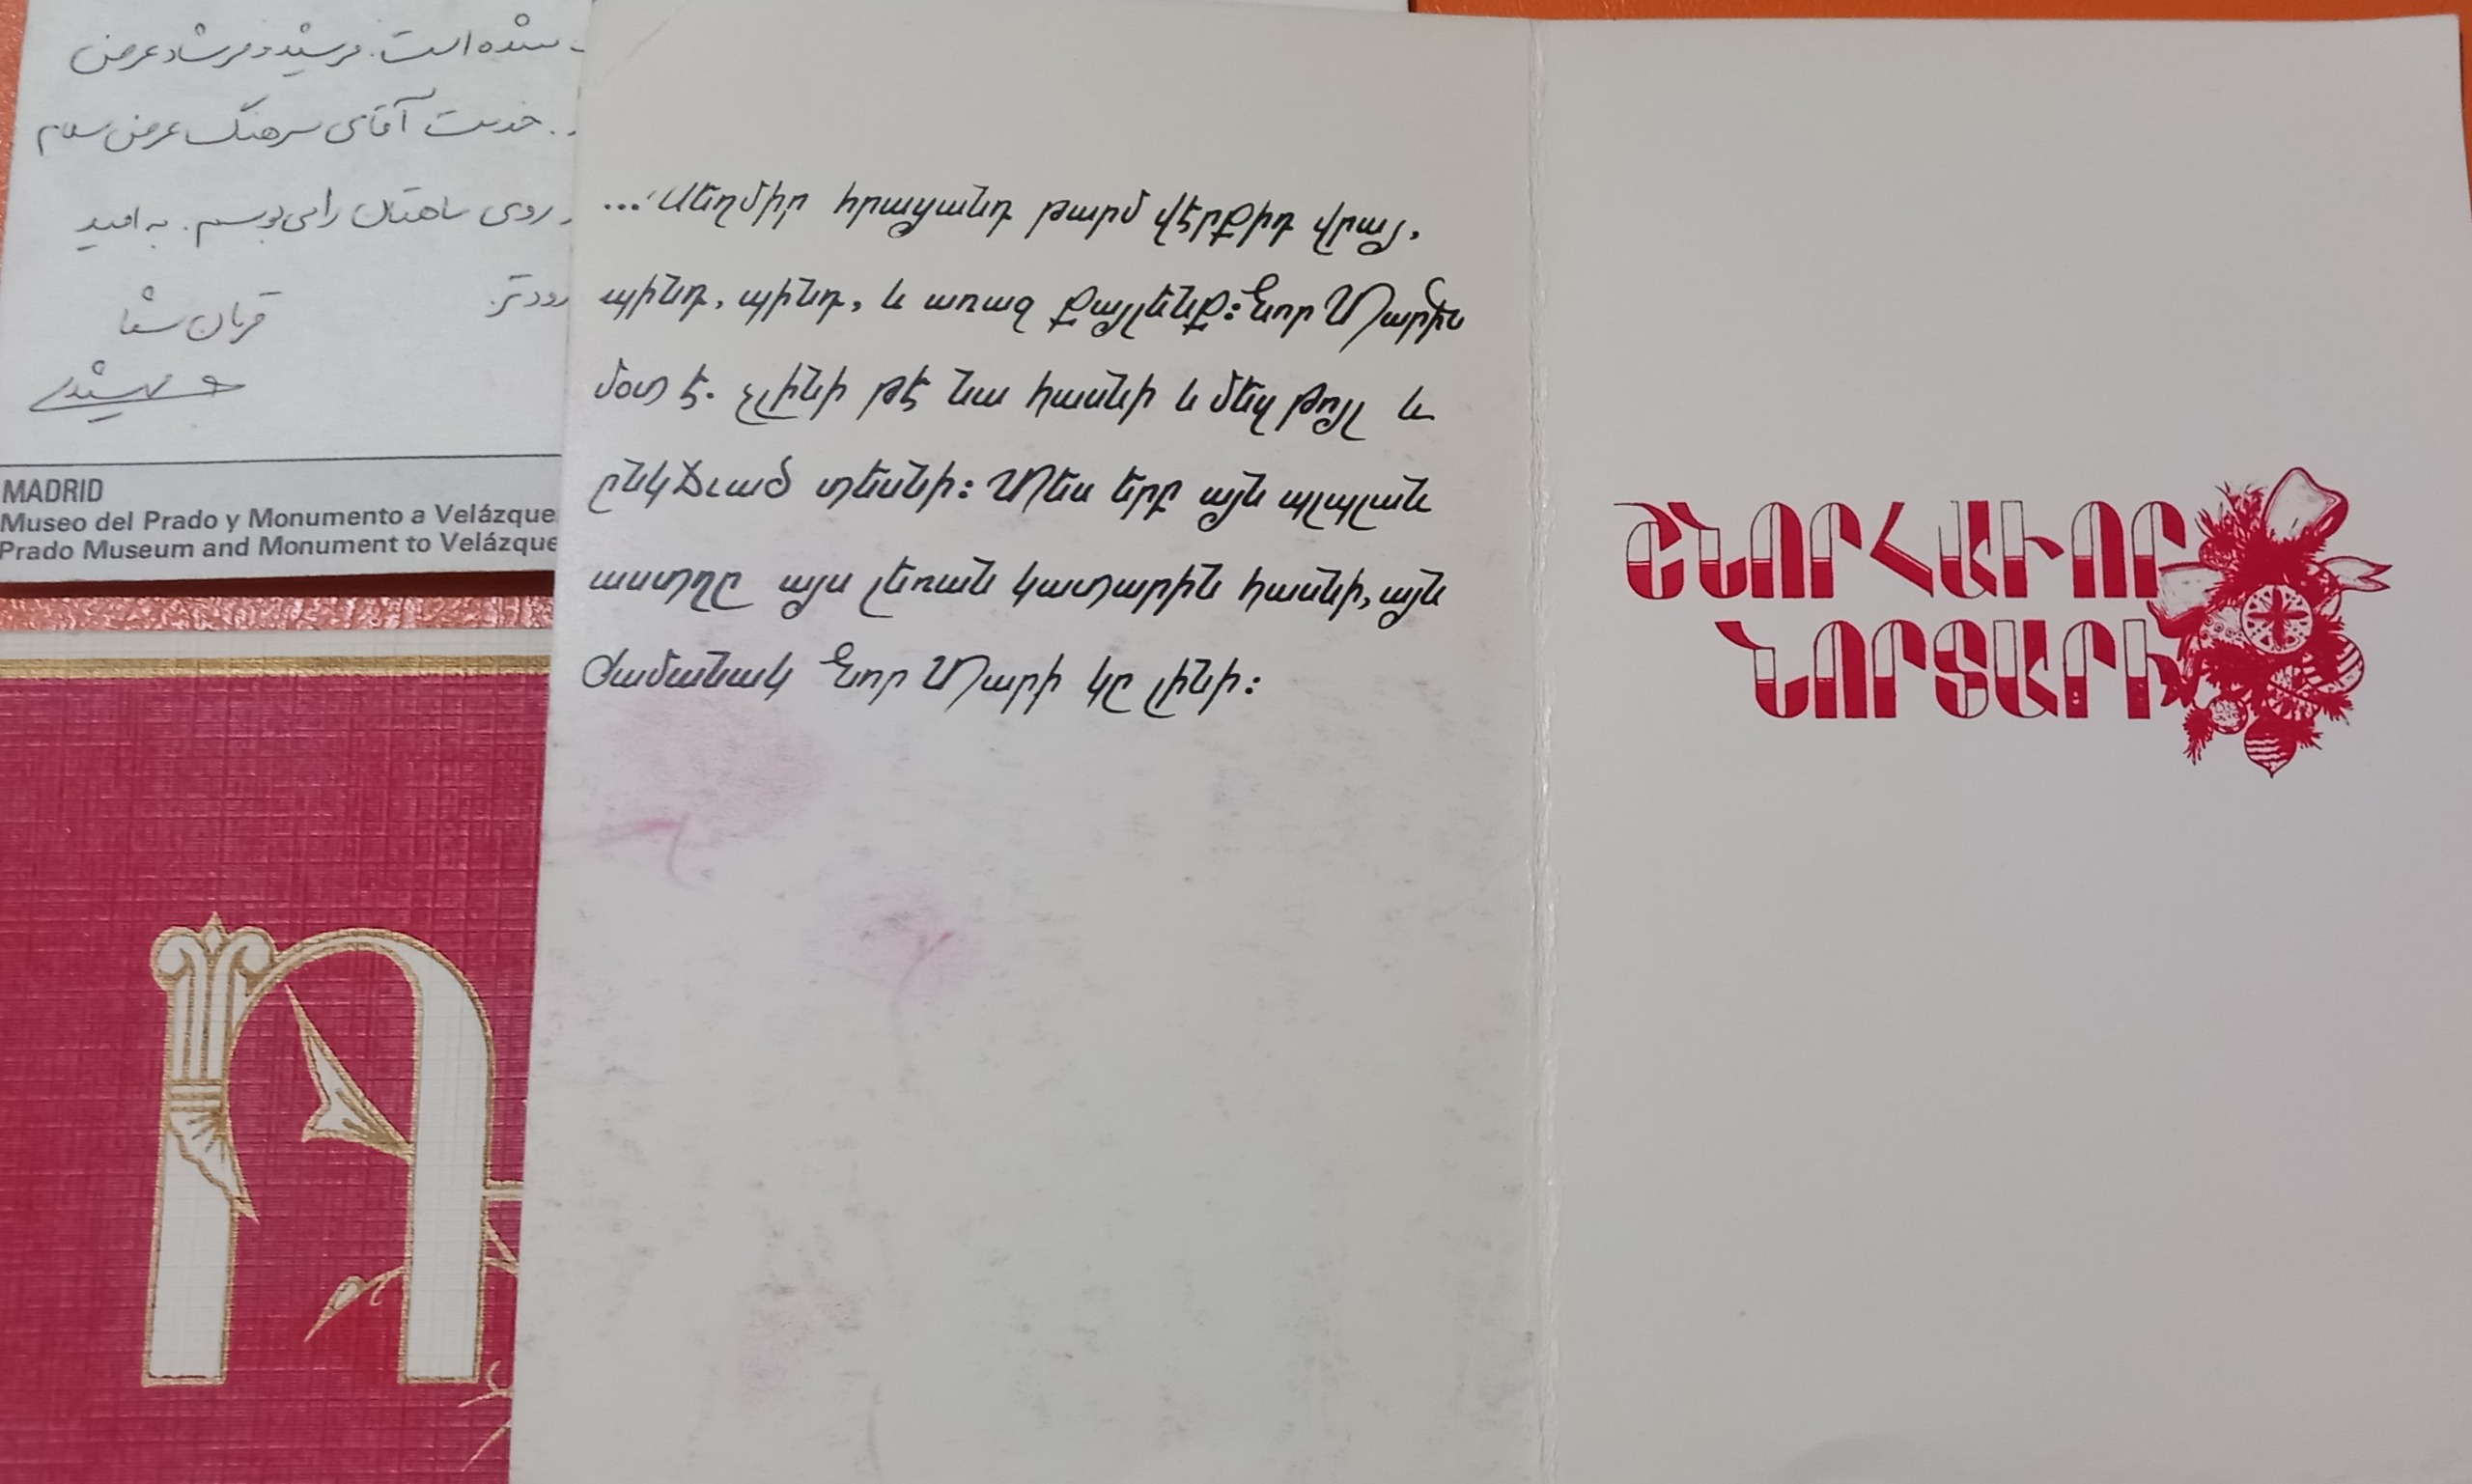 شده است. فرشید و فرشاد عرض
خدمت آقای سرهنگ عرض سلام
روی ماهتان را می‌بوسم. به امید
زودتر.
قربان شما
MADRID
Museo del Prado y Monumento a Velázque
Prado Museum and Monument to Velázque
...Սեղմիր հրացանդ թարմ վէրքիդ վրայ,
պինդ, պինդ, և առաջ քայլենք: Նոր Տարին
մօտ է. չլինի թէ նա հասնի և մեզ թոյլ և
ընկճւած տեսնի: Մեզ երբ այն պլպլան
աստղը այս լեռան կատարին հասնի, այն
ժամանակ Նոր Տարի կը լինի:
ՇՆՈՐՀԱՒՈՐ
ՆՈՐ ՏԱՐԻ